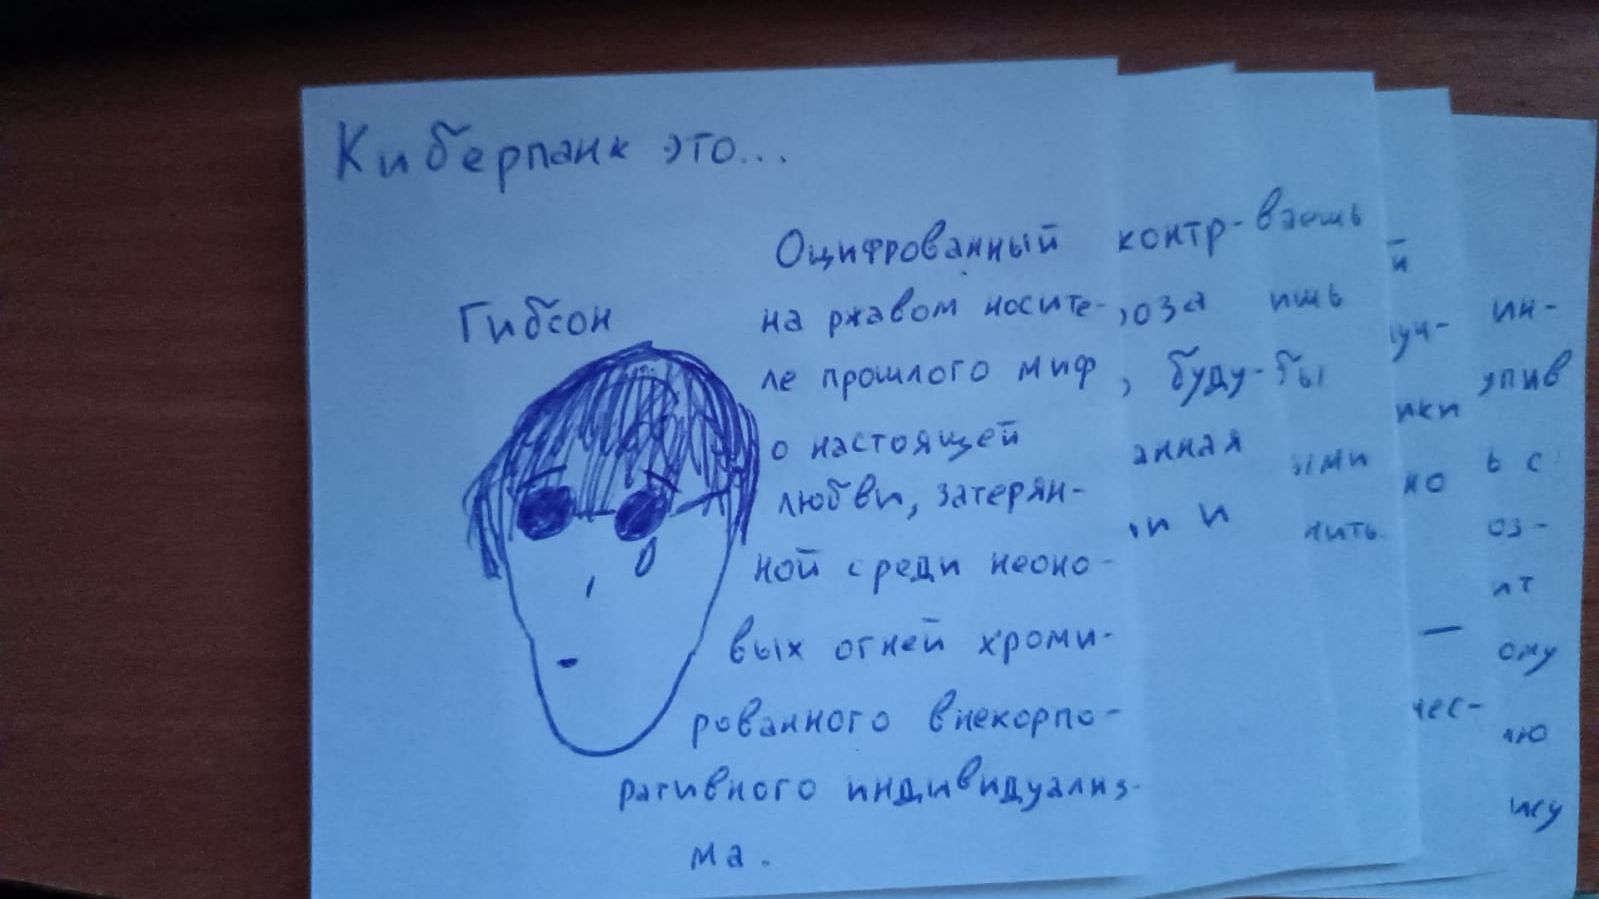 Киберпанк это...
Гибсон
Оцифрованный
на ржавом носите-
ле прошлого миф
о настоящей
любви, затерян-
ной среди неоно-
вых огней хроми-
рованного внекорпо-
ративного индивидуализ-
ма.
контр-
, буду-
анная
и и
ваешь
ишь
бы
ыми
нить
й
уч-
ики
но
—
чес-
ин-
упив
ь с
оз-
ят
ому
лю
ису